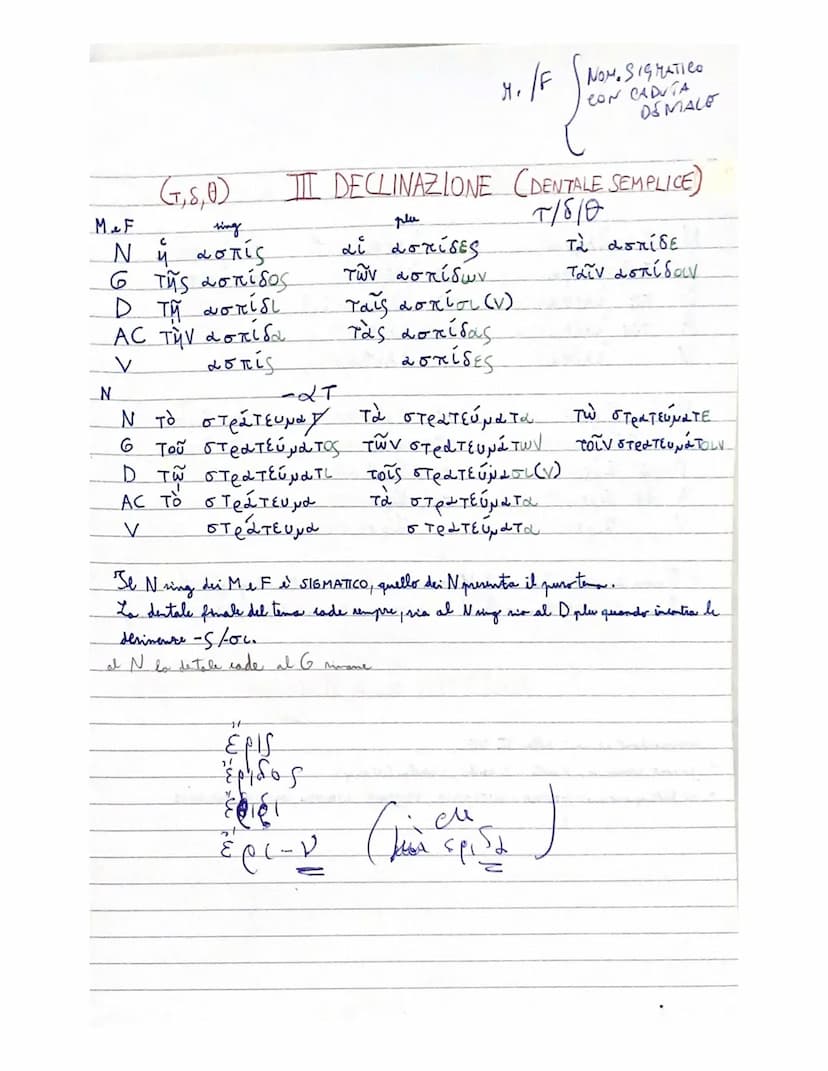 M./F { NOM. SIGMATICO
CON CADUTA
DENTALE
(τ,δ,θ) III DECLINAZIONE (DENTALE SEMPLICE)
τ/δ/θ
M e F sing plu
N ἡ ασπίς αἱ ασπίδες τὰ ασπίδε
G τῆς ασπίδος τῶν ασπίδων ταῖν ασπίδοιν
D τῇ ασπίδι ταῖς ασπίσι(ν)
AC τὴν ασπίδα τὰς ασπίδας
V ασπίς ασπίδες
N -ατ
N τὸ στράτευματ τὰ στρατεύματα τὼ στρατεύματε
G τοῦ στρατεύματος τῶν στρατευμάτων τοῖν στρατευμάτοιν
D τῷ στρατεύματι τοῖς στρατεύμασι(ν)
AC τὸ στράτευμα τὰ στρατεύματα
V στράτευμα στρατεύματα
Il N sing dei M e F è SIGMATICO, quello dei N presenta il puro tema.
La dentale finale del tema cade sempre, sia al N sing sia al D plu quando incontra le
desinenze -ς/-σι.
al N la detale cade al G rimane
ἔρις
ἔριδος
ἔριδι
ἔρι-ν ( che ἐριδα )